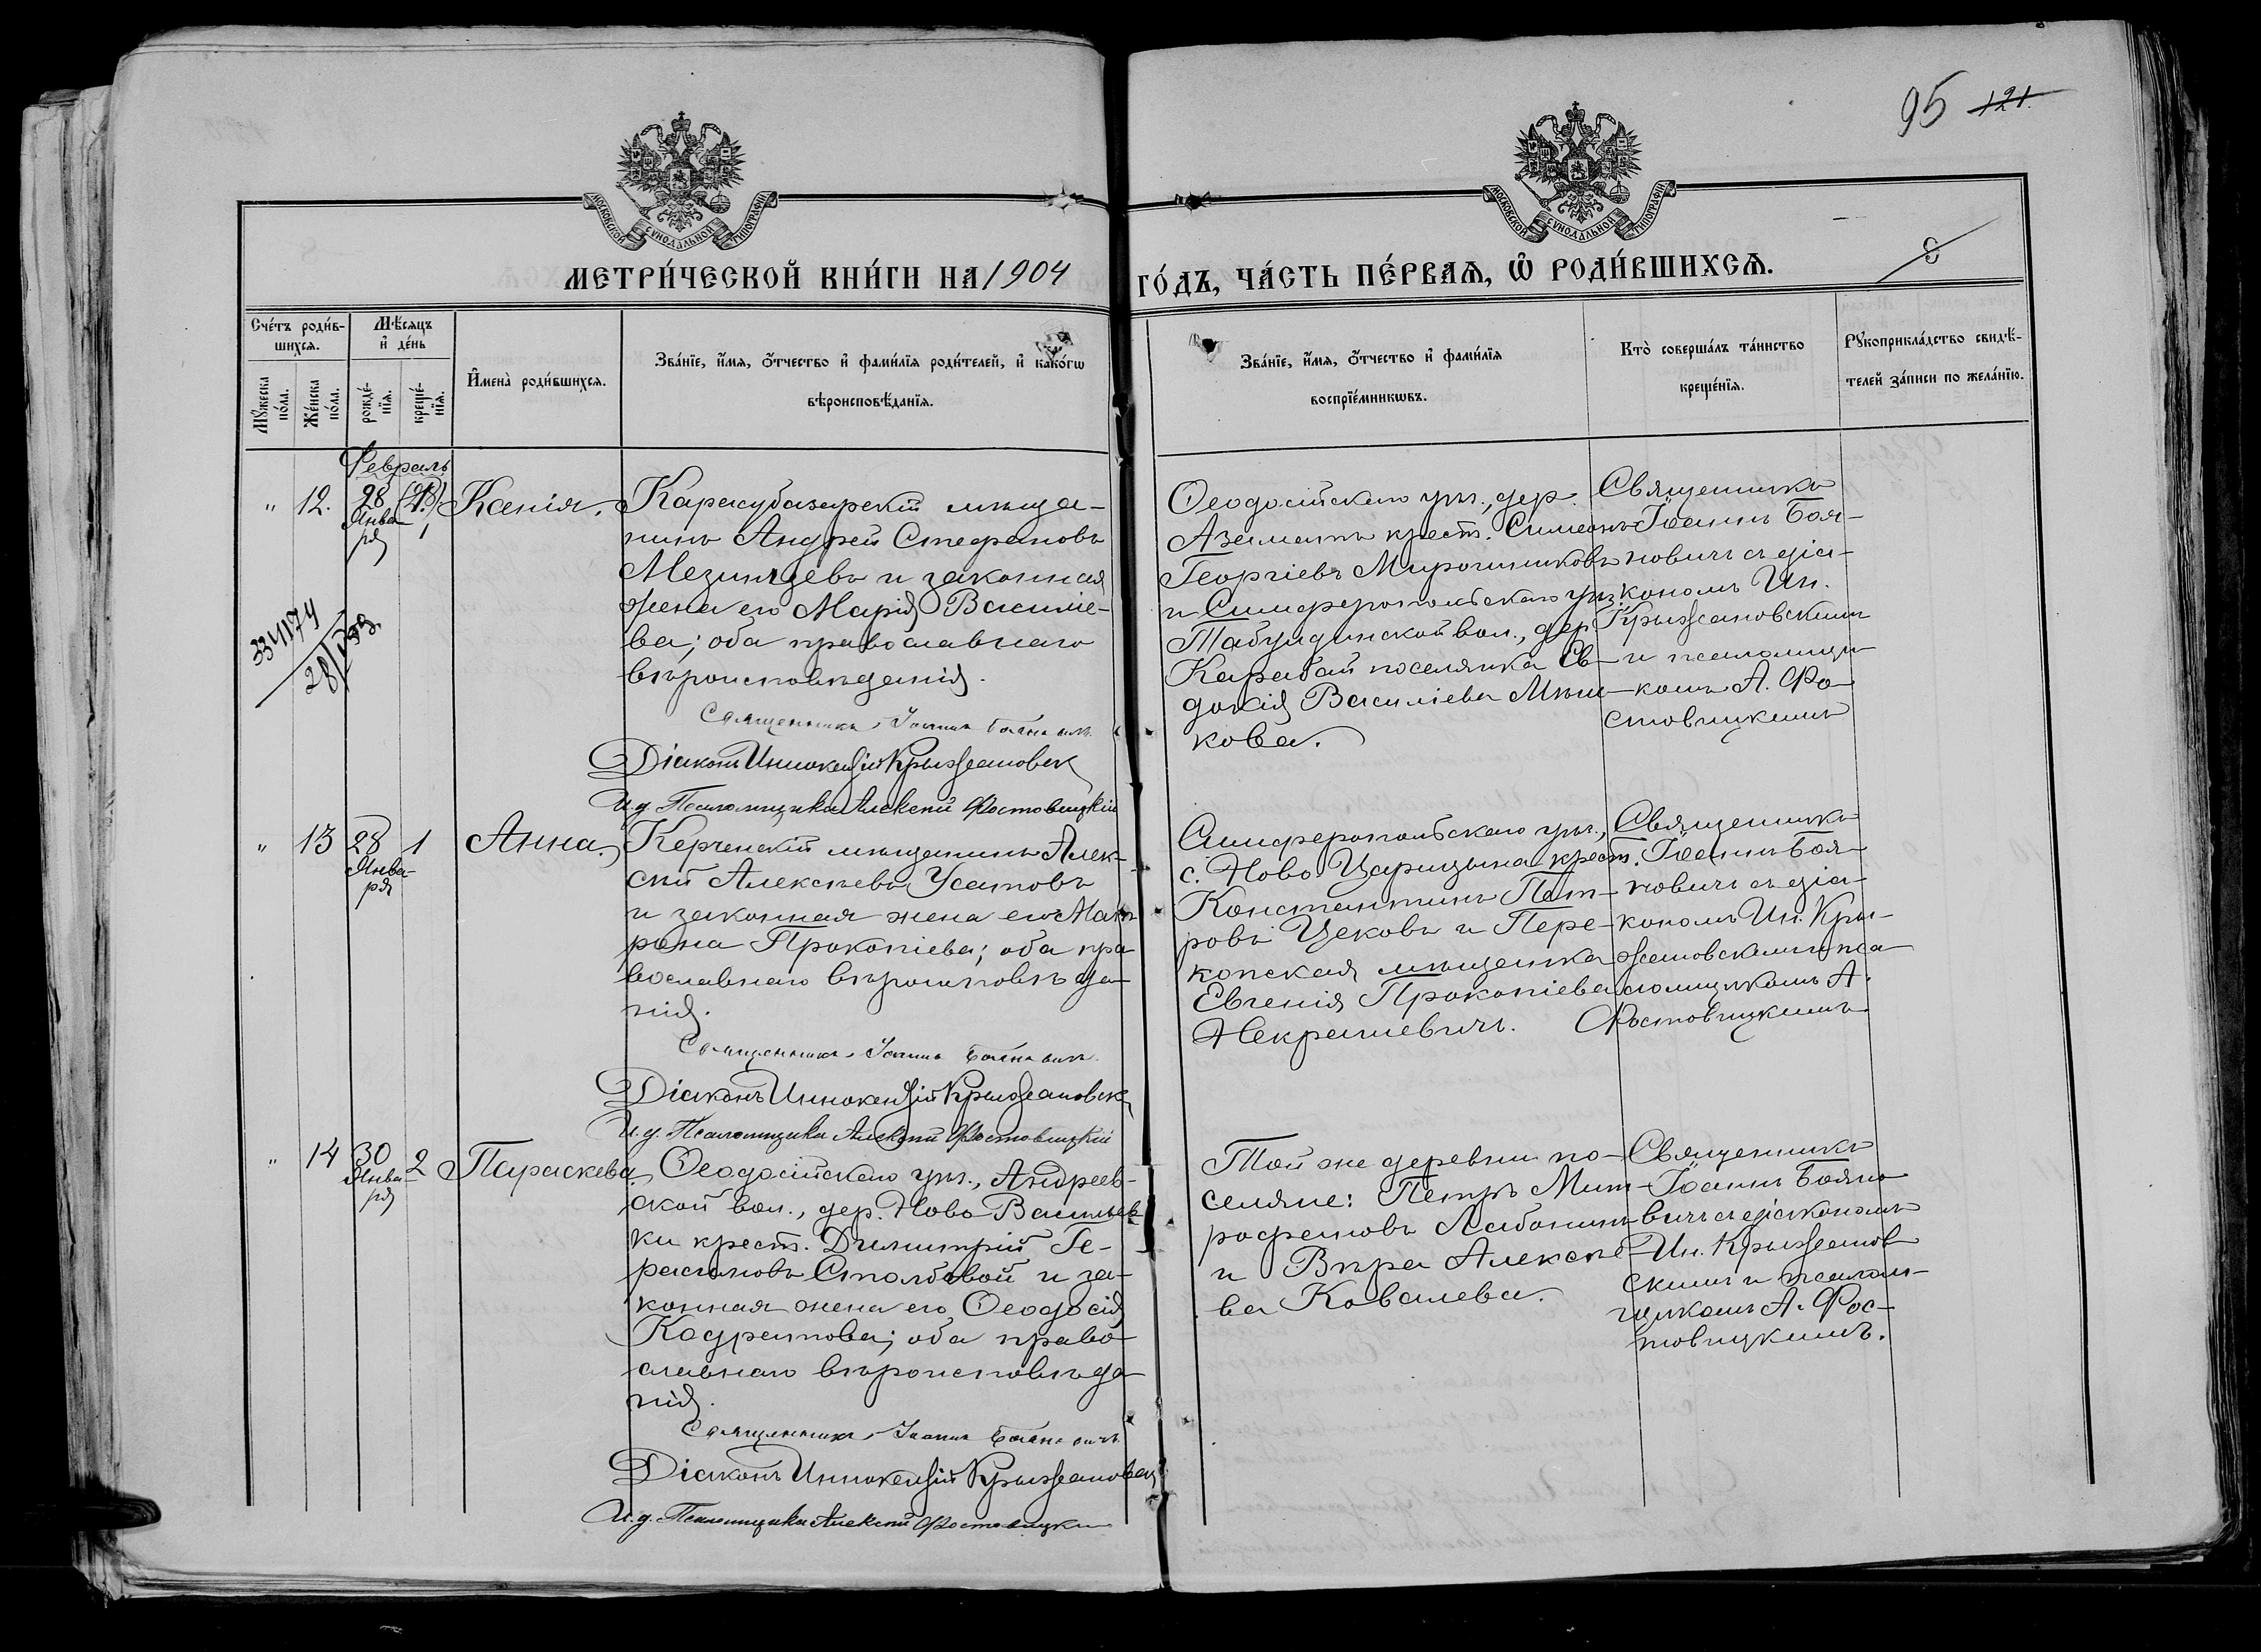 95 121.
МОСКОВСКОЙ СѴНОДАЛЬНОЙ ТИПОГРАФІИ
МОСКОВСКОЙ СѴНОДАЛЬНОЙ ТИПОГРАФІИ
МЕТРИ́ЧЕСКОЙ КНИ́ГИ НА 1904
ГО́ДЪ, ЧА́СТЬ ПЕ́РВАѦ, Ѡ҆ РОДИ́ВШИХСѦ.
Сче́тъ роди́в-
шихсѧ.
Мꙋ́жеска по́ла.
Же́нска по́ла.
Мѣ́сѧцъ
и҆ де́нь
рожде́-
нїѧ.
креще́-
нїѧ.
И҆мена̀ роди́вшихсѧ.
Зва́нїе, и҆́мѧ, ѻ҆́тчество и҆ фами́лїѧ роди́телей, и҆ како́гѡ
вѣроисповѣ́данїѧ.
Зва́нїе, и҆́мѧ, ѻ҆́тчество и҆ фами́лїѧ
воспрїе́мникѡвъ.
Кто̀ соверша́лъ та́инство
креще́нїѧ.
Рꙋкоприкла́дство свидѣ́-
телей за́писи по жела́нїю.
Февраль
" 12. 28 Января 1 Ксенія.
Карасубазарскій мѣща-
нинъ Андрей Стефановъ
Мезинцевъ и законная
жена его Марія Василіе-
ва; оба православнаго
вѣроисповѣданія.
Священникъ Іоаннъ Бояновичъ
Діаконъ Иннокентій Крыжановск
И.д. Псаломщика Алексій Фостовицкій
Ѳеодосійскаго уѣз., дер.
Азаматъ крест. Симеонъ
Георгіевъ Мирошниковъ
и Симферопольскаго уѣз.
Табулдинской вол., дер.
Карабай поселянка Ев-
докія Василіева Мѣш-
кова.
Священникъ
Іоаннъ Боя-
новичъ съ діа-
кономъ Ин.
Крыжановскимъ
и псаломщи-
комъ А. Фо-
стовицкимъ
334174
" 13 28 Января 1 Анна.
Керченскій мѣщанинъ Алек-
сѣй Алексѣевъ Усатовъ
и законная жена его Мат-
рона Прокопіева; оба пра-
вославнаго вѣроисповѣда-
нія.
Священникъ Іоаннъ Бояновичъ
Діаконъ Иннокентій Крыжановск
И.д. Псаломщика Алексій Фостовицкій
Симферопольскаго уѣз.,
с. Ново Царицына крест.
Константинъ Пет-
ровъ Цековъ и Пере-
копская мѣщанка
Евгенія Прокопіева
Некрашевичъ.
Священникъ
Іоаннъ Боя-
новичъ съ діа-
кономъ Ин. Кры-
жановскимъ и пса-
ломщикомъ А.
Фостовицкимъ.
" 14 30 Января 2 Параскева.
Ѳеодосійскаго уѣз., Андреев-
ской вол., дер. Ново Васильев-
ки крест. Димитрій Ге-
расимовъ Столбовой и за-
конная жена его Ѳеодосія
Кодратова; оба право-
славнаго вѣроисповѣда-
нія.
Священникъ Іоаннъ Бояновичъ
Діаконъ Иннокентій Крыжановск
И.д. Псаломщика Алексій Фостовицкі
Той же деревни по-
селяне: Петръ Мит-
рофановъ Лабонинъ
и Вѣра Алексѣе-
ва Ковалева.
Священникъ
Іоаннъ Бояно-
вичъ съ діакономъ
Ин. Крыжанов-
скимъ и псалом-
щикомъ А. Фос-
товицкимъ.